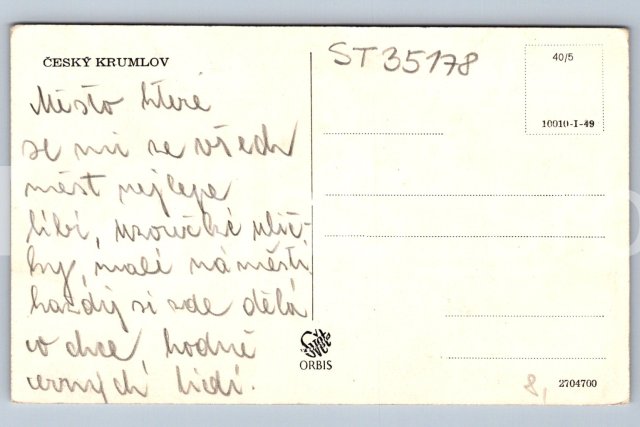 ČESKÝ KRUMLOV
Místo které
se mi ze všech
měst nejlépe
líbí, uzoučké ulič-
ky, malé náměstí,
každý si zde dělá
co chce, hodně
černých lidí.
ST35178
40/5
10010-I-49
Svět
ORBIS
8,
2704700